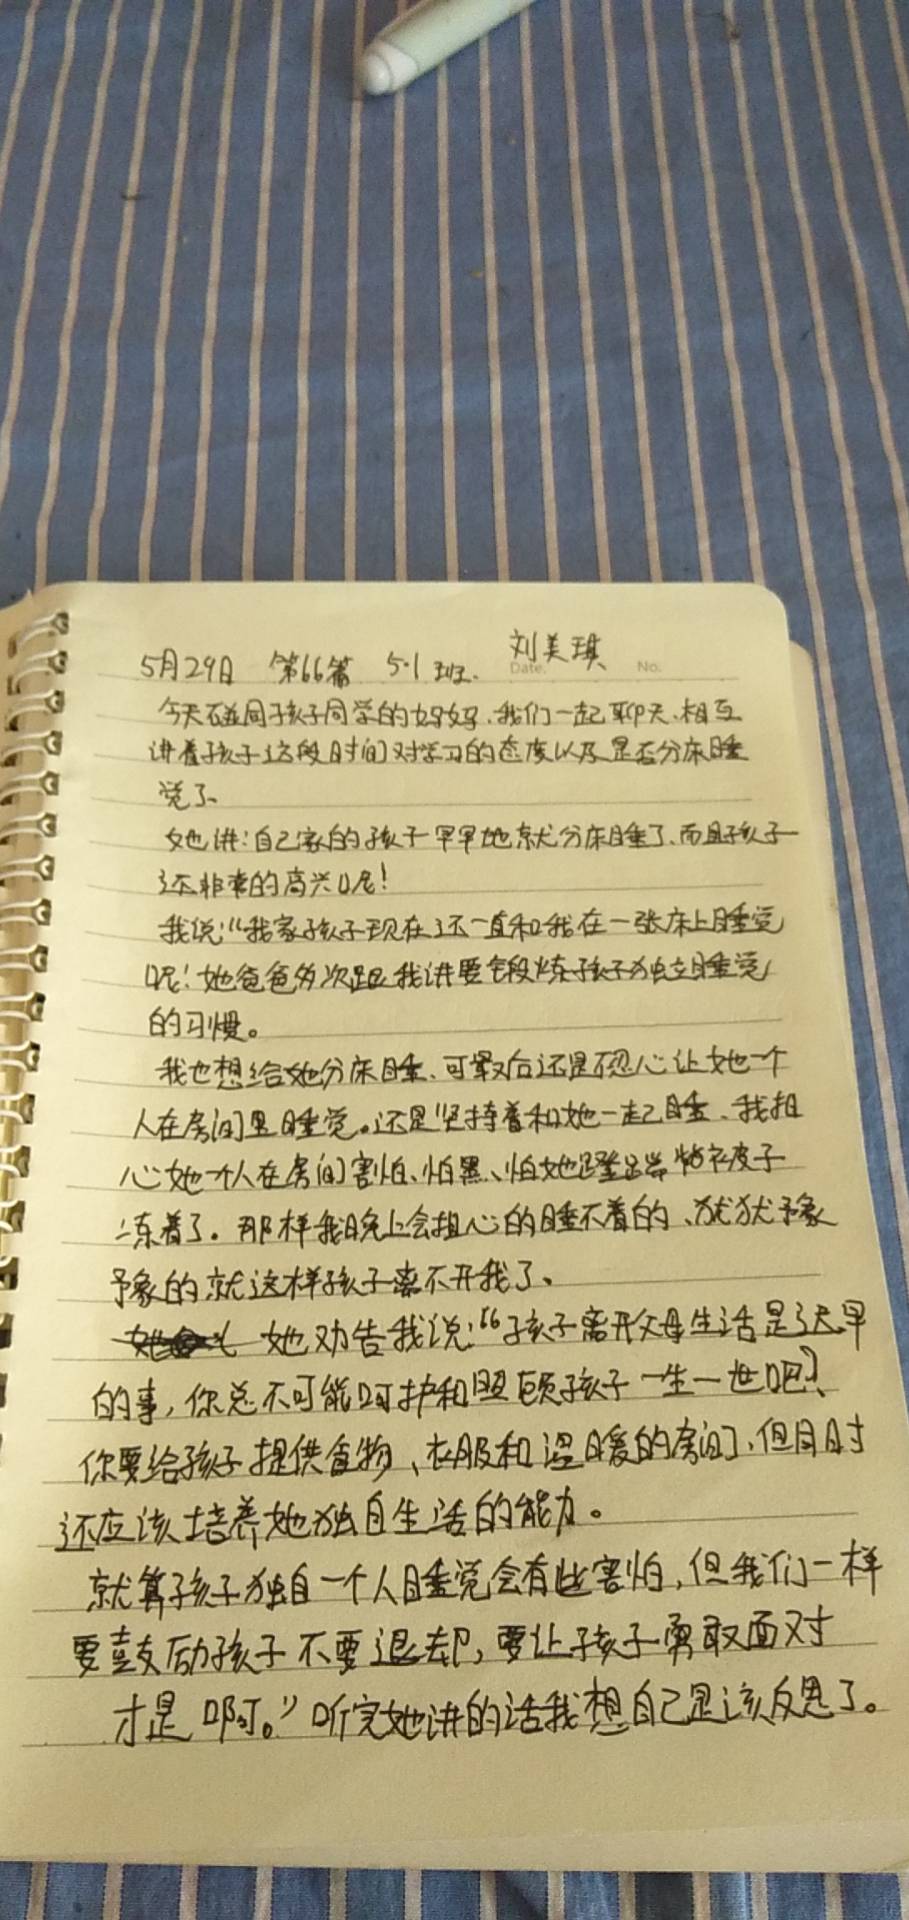 5月29日 第66篇 5·1班. 刘美琪
Date. No.
今天碰周子孩子同学的妈妈、我们一起聊天、相互
讲着孩子这段时间对学习的态度以及是否分床睡
觉了、
她讲:自己家的孩子早早地就分床睡了、而且孩子
还非常的高兴呢!
我说:“我家孩子现在还一直和我在一张床上睡觉
呢!她爸爸多次跟我讲要锻炼孩子独立睡觉
的习惯。
我也想给她分床睡、可最后还是不忍心让她一个
人在房间里睡觉。还是坚持着和她一起睡、我担
心她一个人在房间害怕、怕黑、怕她蹬被子
冻着了。那样我晚上会担心的睡不着的、犹犹豫
豫的就这样孩子离不开我了、
她劝告我说:“孩子离开父母生活是迟早
的事,你总不可能呵护和照顾孩子一生一世吧?、
你要给孩子提供食物、衣服和温暖的房间、但同时
还应该培养她独自生活的能力。
就算孩子独自一个人睡觉会有些害怕,但我们一样
要鼓励孩子不要退却,要让孩子勇敢面对
才是啊。”听完她讲的话我想自己是该反思了。